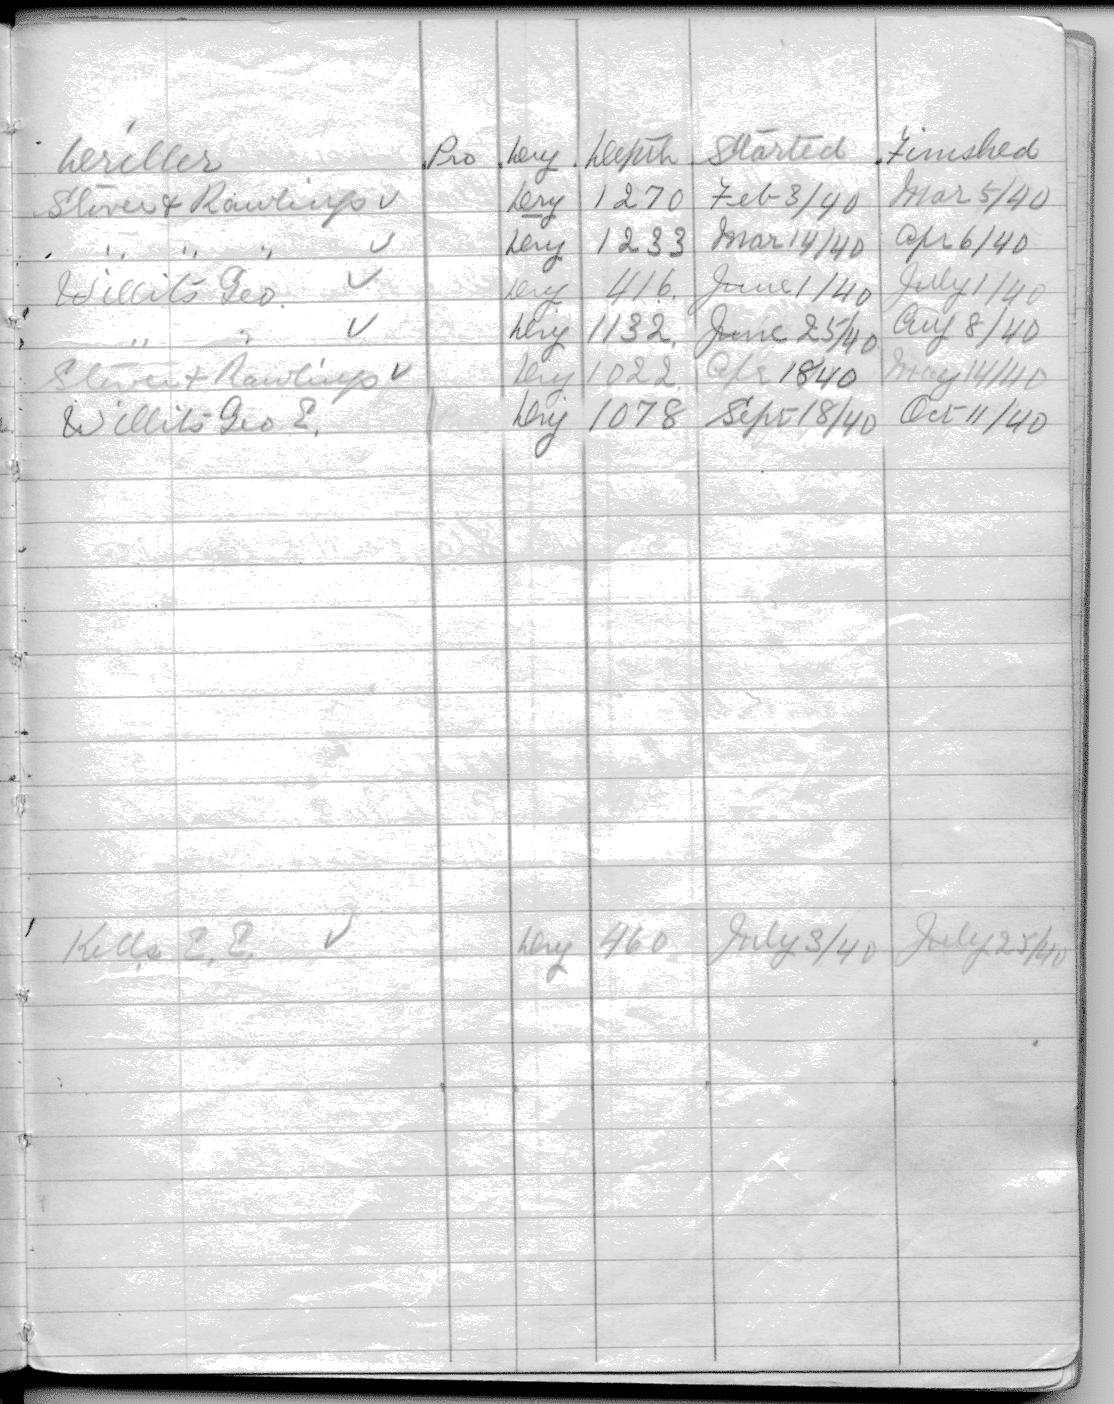 Driller Pro Dry Depth Started Finished
Stover & Rawlings ✓ Dry 1270 Feb 3/40 Mar 5/40
" " " ✓ Dry 1233 Mar 14/40 Apr 6/40
Willits Geo. ✓ Dry 416 June 1/40 July 1/40
" " ✓ Dry 1132 June 25/40 Aug 8/40
Stover & Rawlings ✓ Dry 1022 Apr 18 40 May 14/40
Willits Geo E. Dry 1078 Sept 18/40 Oct 11/40
Kells E. E. ✓ Dry 460 July 3/40 July 25/40